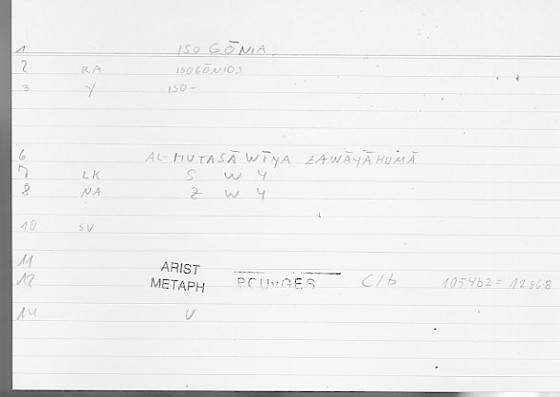 1 ISOGŌNIA
2 RA ISOGŌNIOS
3 Y ISO-
6 AL-MUTASĀWĪYA ZAWĀYĀHUMĀ
7 LK S W Y
8 NA Z W Y
10 SV
11 ARIST
12 METAPH C/b 1054b2 = 1286.8
14 U